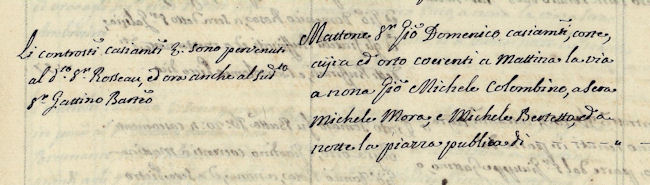 Li controstti casiamti &. sono pervenuti
al do. sr. Rosseau, ed ora anche al sudto
sr. Gattino Barteo
Mattone sr Gio Domenico, casiamti, corte,
ajra ed orto coerenti a mattina la via
a nona Gio Michele Colombino, a sera
Michele Mora, e Michele Bertetta, ed a
notte la piazza publica di